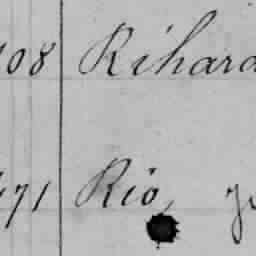 108 Rihard
471 Rio,